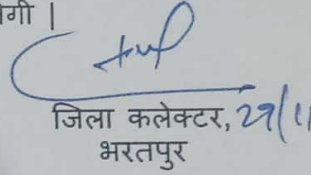 गी ।
जिला कलेक्टर, 29/11
भरतपुर